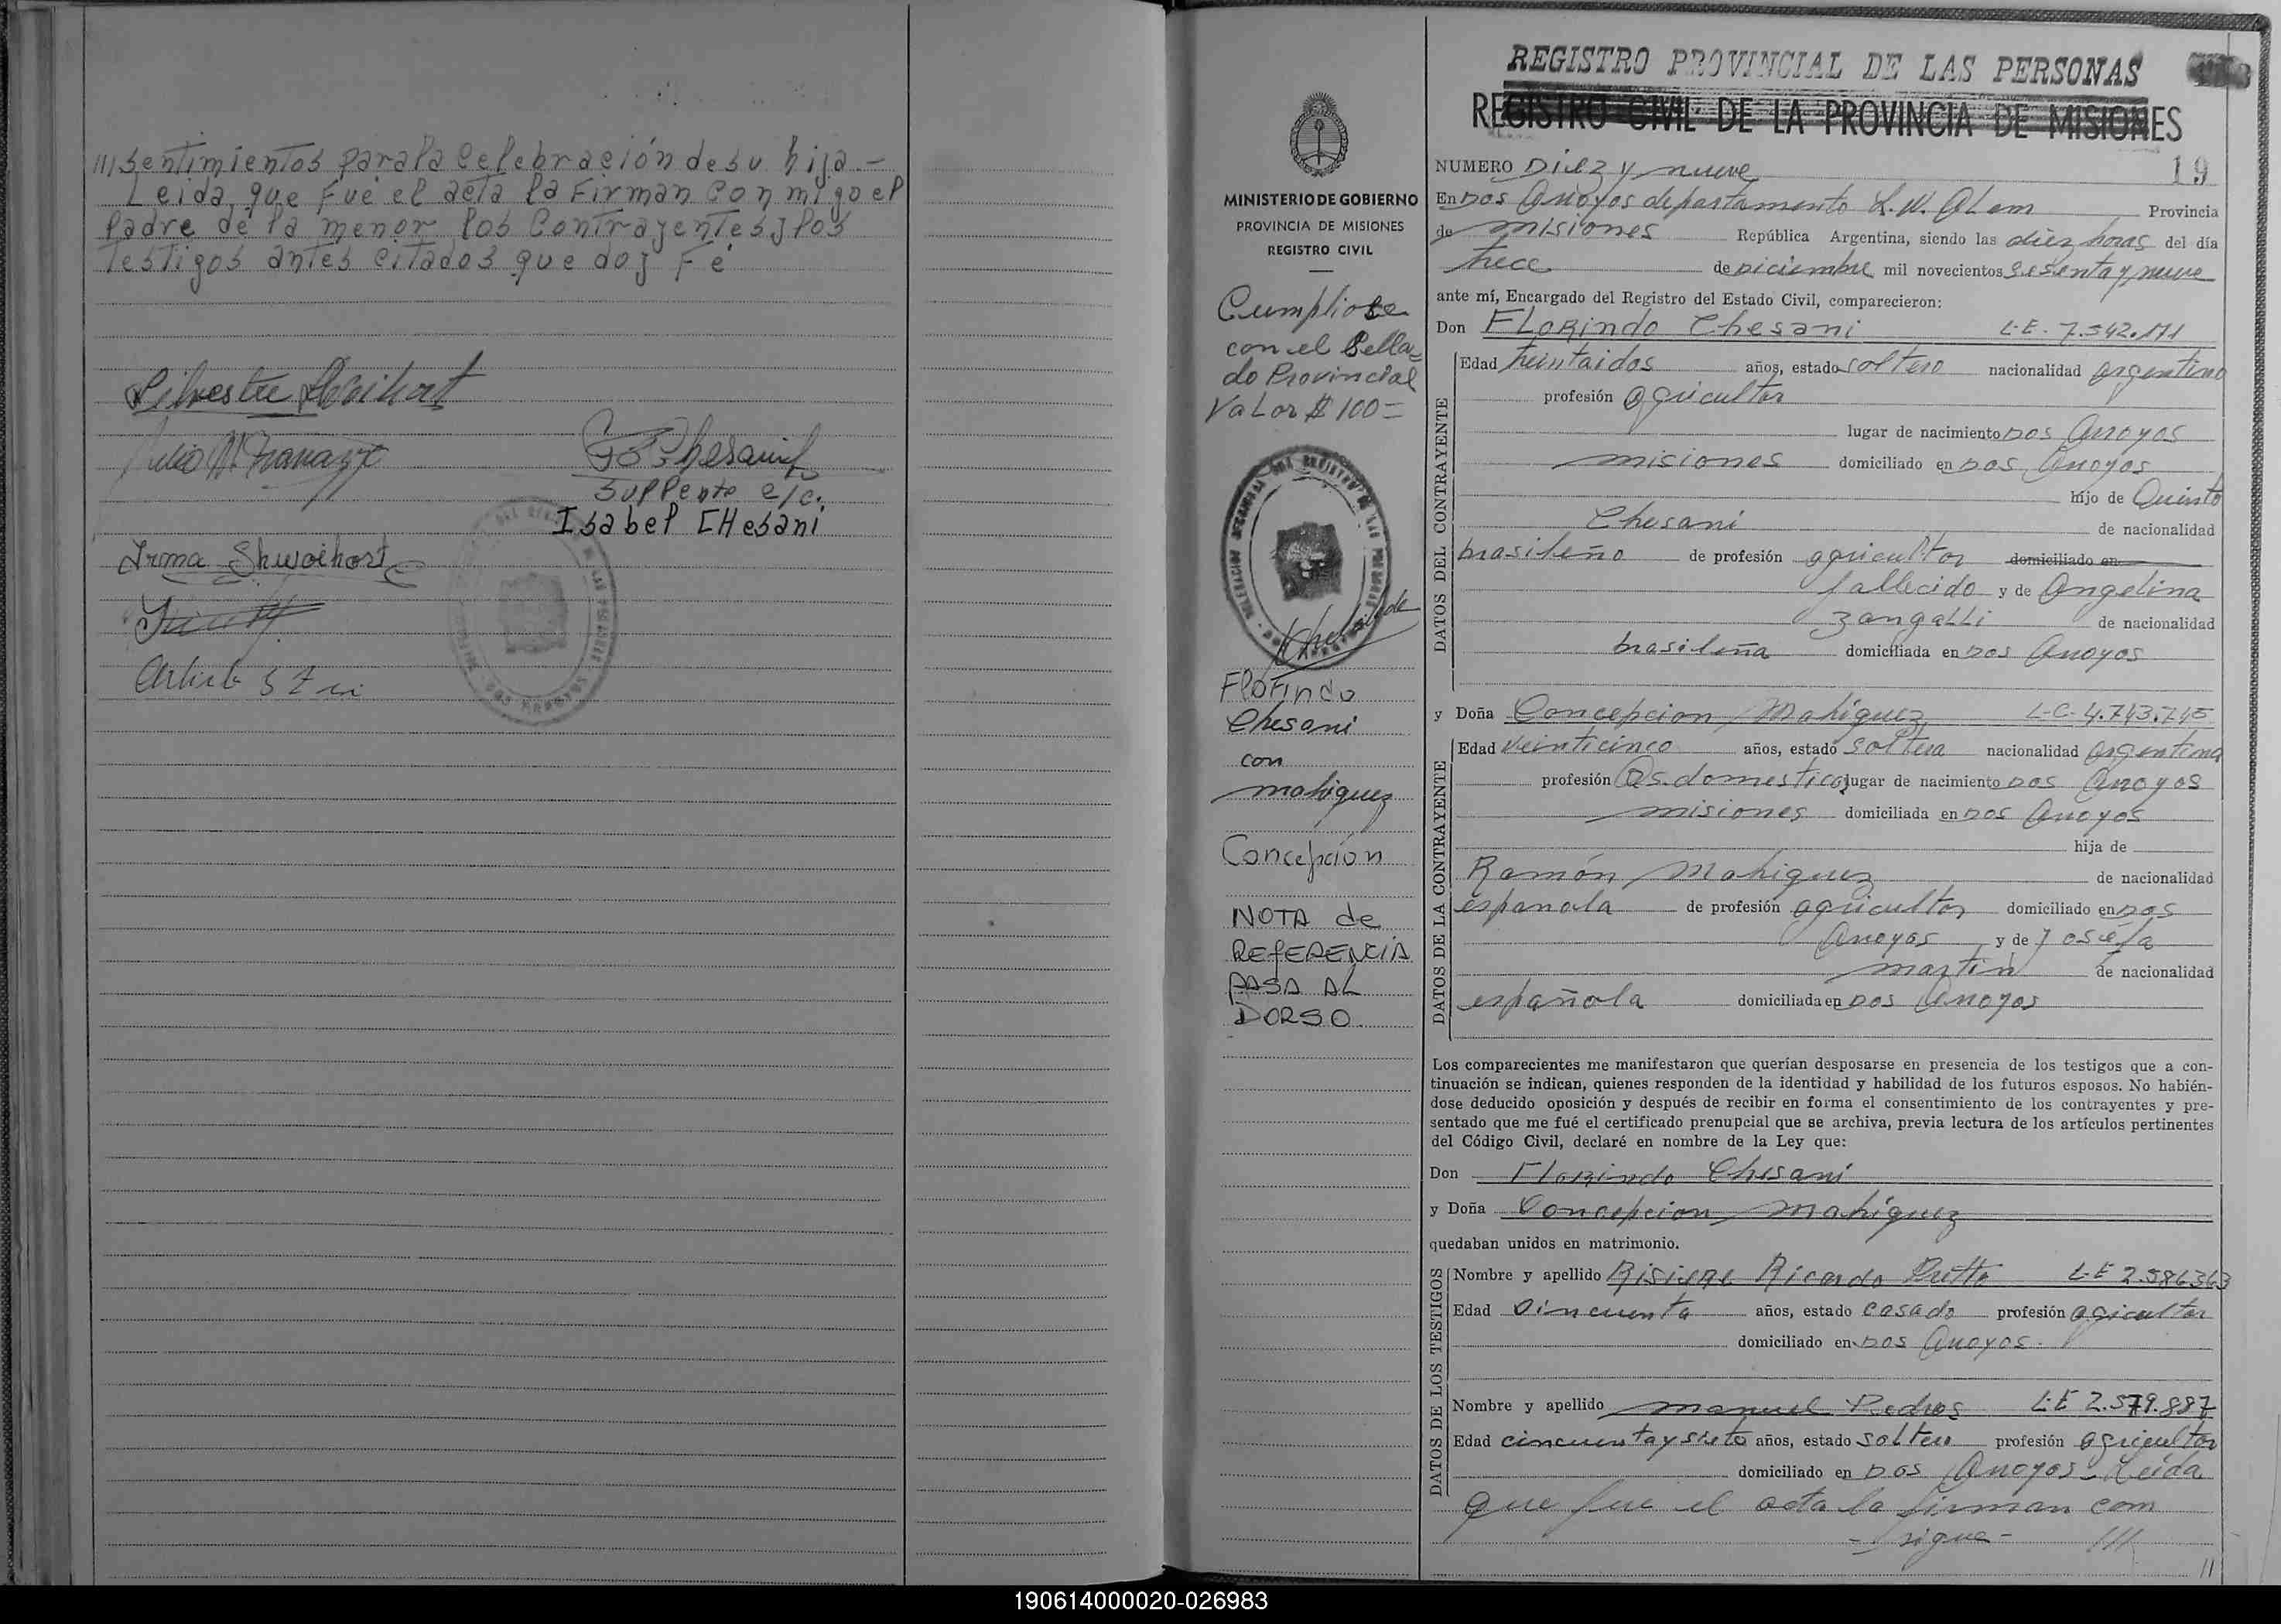 ///) sentimientos para la Celebración de su hija.-
Leida que fue el acta la Firman Con migo el
Padre de la menor los Contrayentes y los
testigos antes citados que doy Fe
Silvestre
Suplente e/c.
Isabel CHesani
Irma Skwoihort
REGISTRO PROVINCIAL DE LAS PERSONAS
REGISTRO CIVIL DE LA PROVINCIA DE MISIONES
MINISTERIO DE GOBIERNO
PROVINCIA DE MISIONES
REGISTRO CIVIL
Cumpliose
con el Sella-
do Provincial
Valor $ 100=
Florindo
Chesani
con
Mahiguez
Concepción
NOTA de
REFERENCIA
PASA AL
DORSO
NUMERO Diez y nueve 19
En Dos Arroyos departamento L.N. ALem Provincia
de Misiones República Argentina, siendo las diez horas del día
trece de Diciembre mil novecientos sesenta y nueve
ante mí, Encargado del Registro del Estado Civil, comparecieron:
Don FLORindo Chesani L.E. 7.542.171
DATOS DEL CONTRAYENTE
Edad treintaidos años, estado soltero nacionalidad argentino
profesión agricultor
lugar de nacimiento Dos Arroyos
Misiones domiciliado en Dos Arroyos
hijo de Quinto
Chesani de nacionalidad
brasileño de profesión agricultor domiciliado en
fallecido y de Angelina
Zangalli de nacionalidad
brasileña domiciliada en Dos Arroyos
y Doña Concepcion Mahiguez L-C- 4.743.745
DATOS DE LA CONTRAYENTE
Edad Veinticinco años, estado soltera nacionalidad argentina
profesión Qs. domestico lugar de nacimiento Dos Arroyos
Misiones domiciliada en Dos Arroyos
hija de
Ramón Mahiguez de nacionalidad
española de profesión agricultor domiciliado en Dos
Arroyos y de Josefa
Martin de nacionalidad
española domiciliada en Dos Arroyos
Los comparecientes me manifestaron que querían desposarse en presencia de los testigos que a con-
tinuación se indican, quienes responden de la identidad y habilidad de los futuros esposos. No habién-
dose deducido oposición y después de recibir en forma el consentimiento de los contrayentes y pre-
sentado que me fué el certificado prenupcial que se archiva, previa lectura de los artículos pertinentes
del Código Civil, declaré en nombre de la Ley que:
Don Florindo Chesani
y Doña Concepcion Mahiguez
quedaban unidos en matrimonio.
DATOS DE LOS TESTIGOS
Nombre y apellido Risieri Ricardo Prette L-E 2.586363
Edad Cincuenta años, estado casado profesión agricultor
domiciliado en Dos Arroyos.
Nombre y apellido Manuel Pedros L.E 2.579.887
Edad cincuenta y siete años, estado soltero profesión agricultor
domiciliado en Dos Arroyos - Leida
que fue el acta la firman com
- sigue - ///
190614000020-026983